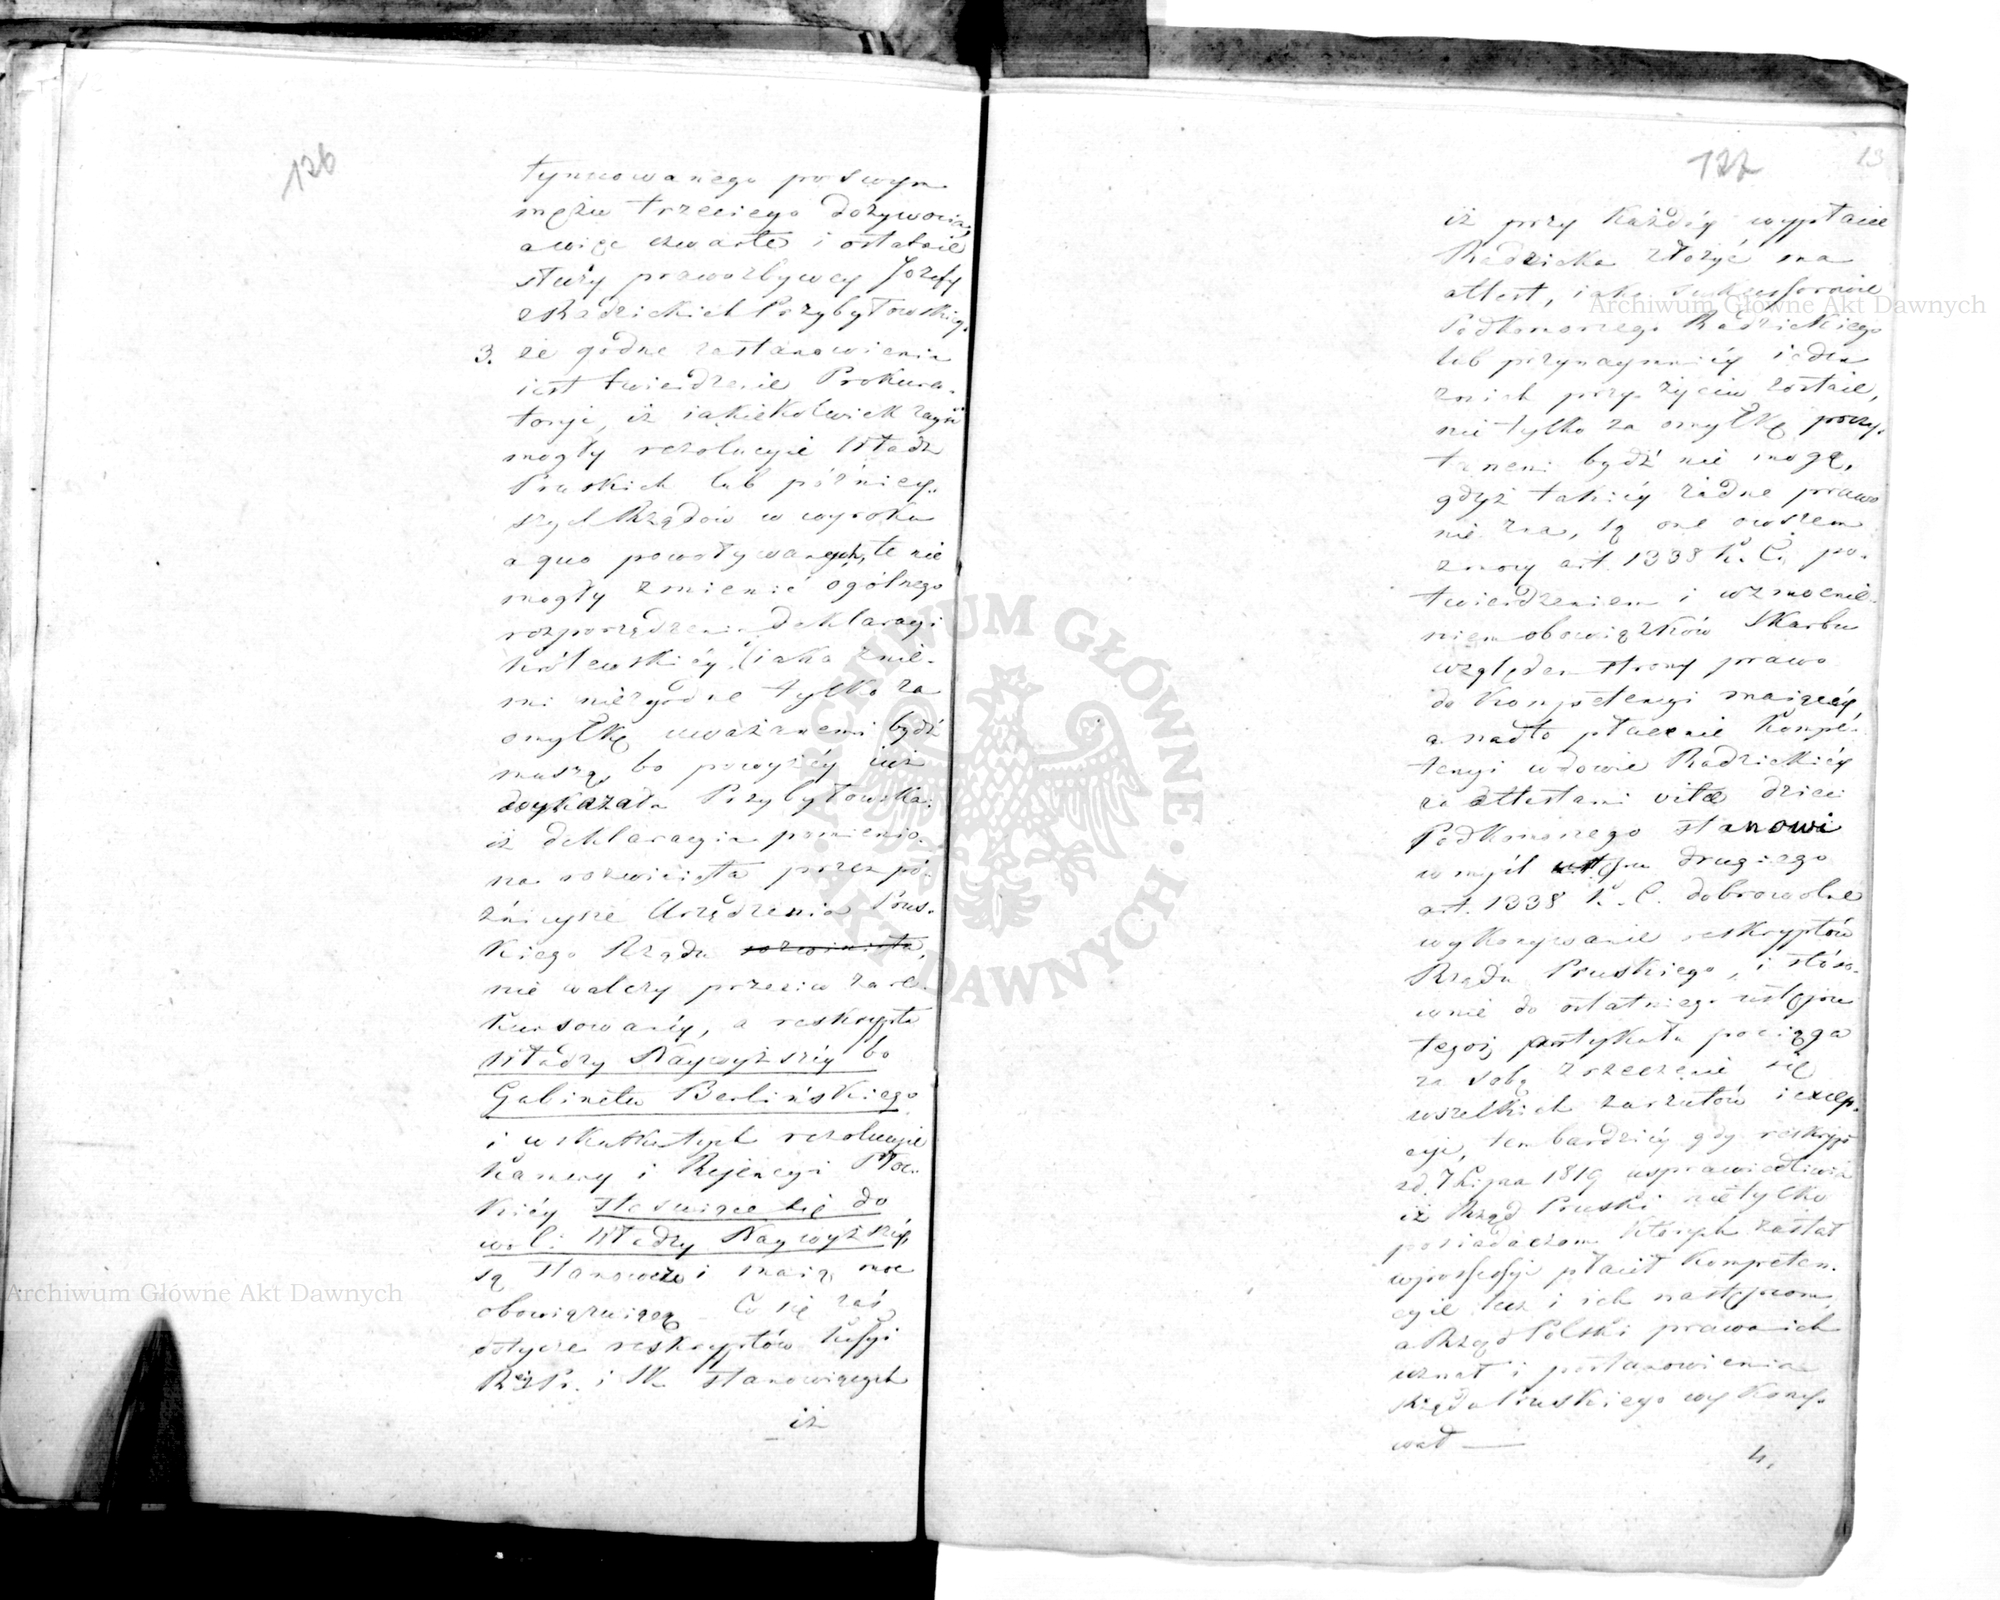 126
tynuowanego po swym
mężu trzeciego dożywocia,
a więc czwarte i ostatnie
służy prawozbywcy Jozefy
z Radzickich Przybyłowskiey.
3. że godne zastanowienia
iest twierdzenie Prokura-
toryi, iż iakiekolwiek zayść
mogły rezolucyie Władz
Pruskich lub późniey-
szych Rządów w wyroku
a quo powoływanych, te nie
mogły zmienić ogólnego
rozporządzenia deklaracyi
Królewskiéy (iako z nie-
mi niezgodne tylko za
omyłkę uważanemi bydź
muszą, bo powyżéy iuż
wykazała Przybyłowska
iż deklaracyia pomienio-
na rozwinięta przez pó-
źnieysze Urządzenia Prus-
kiego Rządu rozwinięta,
nie walczy przeciw zare-
kursowanéy, a reskrypta
Władzy Naywyższéy bo
Gabinetu Berlińskiego
i w skutku tych rezolucyie
Kamery i Rejencyi Płoc-
kiéy stosuiące się do
woli Władzy Naywyższéy,
są stanowcze i maią moc
obowiązuiącą. Co się zaś
dotycze reskryptów Kssyi
R. P. i Sk. stanowiących
iż
127
13
iż przy każdéy wypłacie
Radzicka złożyć ma
attest, iako sukcessorowie
Podkomorzego Radzickiego
lub przynaymniéy ieden
z nich przy życiu zostaie,
nie tylko za omyłkę poczy-
tanemi bydź nie mogą,
gdyż takiéy żadne prawo
nie zna, są one owszem
z mocy art. 1338 K. C. po-
twierdzeniem i wzmocnie-
niem obowiązków Skarbu
względem strony prawo
do kompetencyi maiącéy,
a nadto płacenie kompe-
tencyi wdowie Radzickiéy
za attestami vitae dzieci
Podkomorzego stanowi
w myśl ustępu drugiego
art. 1338 K. C. dobrowolne
wykonywanie reskryptów
Rządu Pruskiego, i stoso-
wnie do ostatniego ustępu
tegoż artykułu pociąga
za sobą zrzeczenie się
wszelkich zarzutów i excep-
cyi, tem bardziéy gdy reskrypt
z d. 7 Lipca 1819 usprawiedliwia
iż Rząd Pruski nie tylko
posiadaczom których zastał
w possessyi płacił kompeten-
cyie lecz i ich następcom,
a Rząd Polski prawo ich
uznał i postanowienia
Rządu Pruskiego wykony-
wał —
4.
Archiwum Główne Akt Dawnych
Archiwum Główne Akt Dawnych
ARCHIWUM GŁÓWNE
AKT DAWNYCH